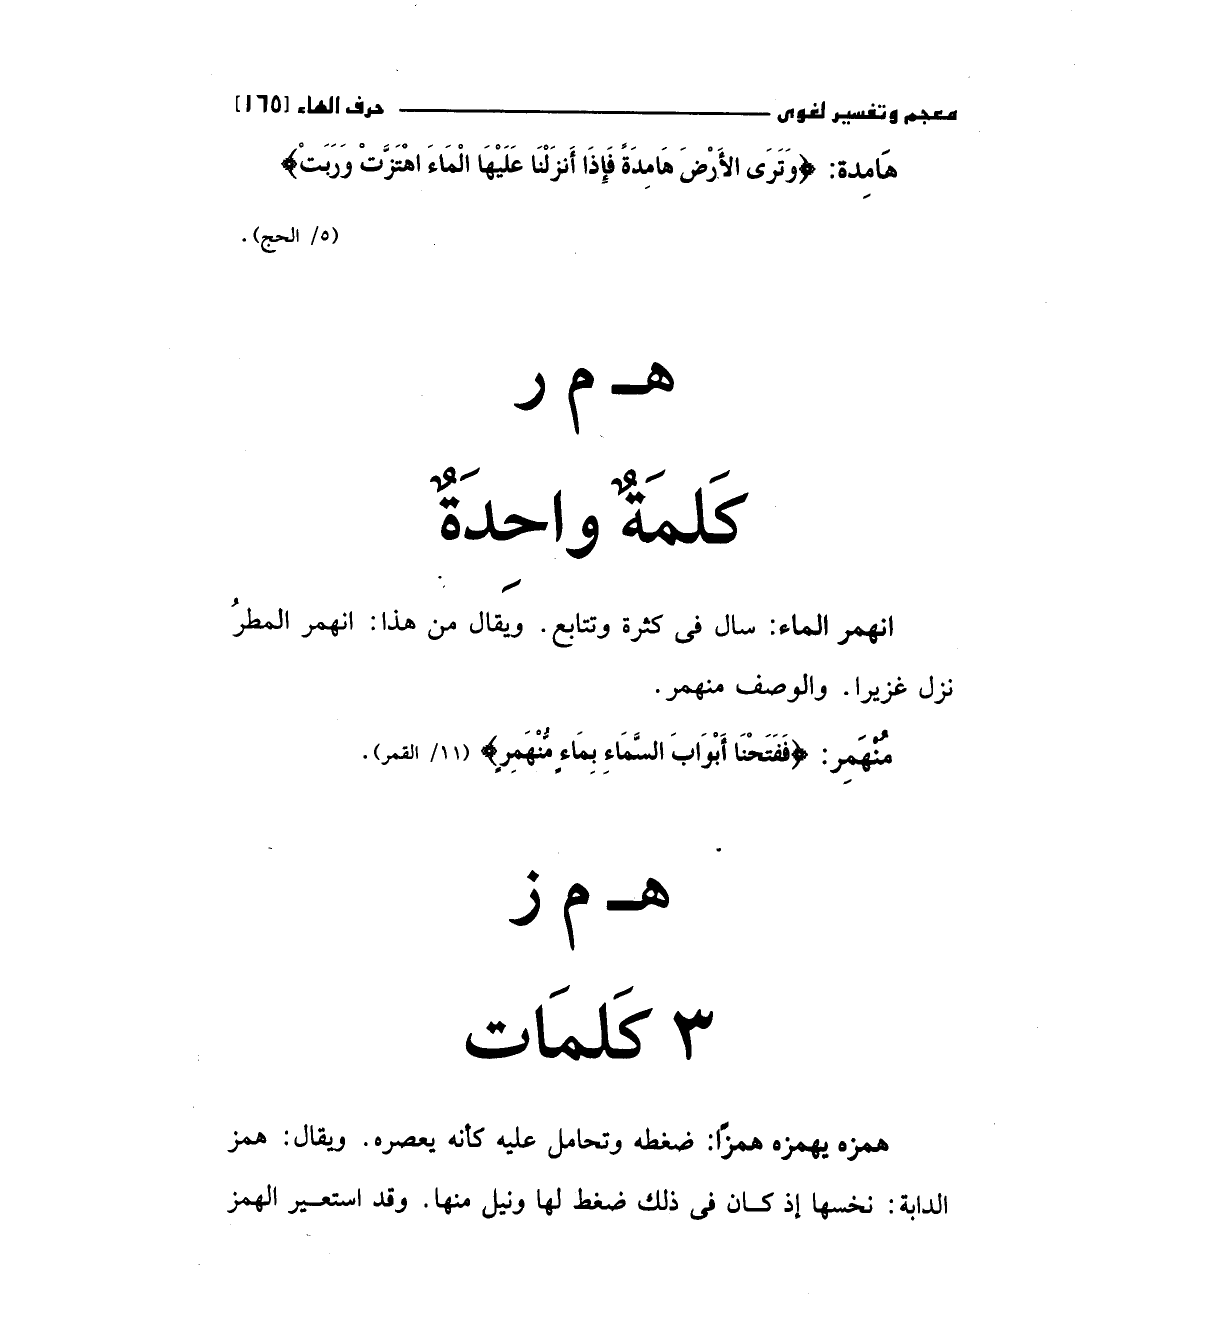 معجم وتفسير لغوى ــــــ حرف الهاء [١٦٥]
هَامِدة: ﴿وَتَرَى الأَرْضَ هَامِدَةً فَإِذَا أَنزَلْنَا عَلَيْهَا الْمَاءَ اهْتَزَّتْ وَرَبَتْ﴾
(٥/ الحج).
هـ م ر
كَلمَةٌ واحِدَةٌ
انهمر الماء: سال فى كثرة وتتابع. ويقال من هذا: انهمر المطرُ
نزل غزيرا. والوصف منهمر.
مُنْهَمِر: ﴿فَفَتَحْنَا أَبْوَابَ السَّمَاءِ بِمَاءٍ مُّنْهَمِرٍ﴾ (١١/ القمر).
هـ م ز
٣ كَلمَات
همزه يهمزه همزًا: ضغطه وتحامل عليه كأنه يعصره. ويقال: همز
الدابة: نخسها إذ كـان فى ذلك ضغط لها ونيل منها. وقد استعـير الهمز